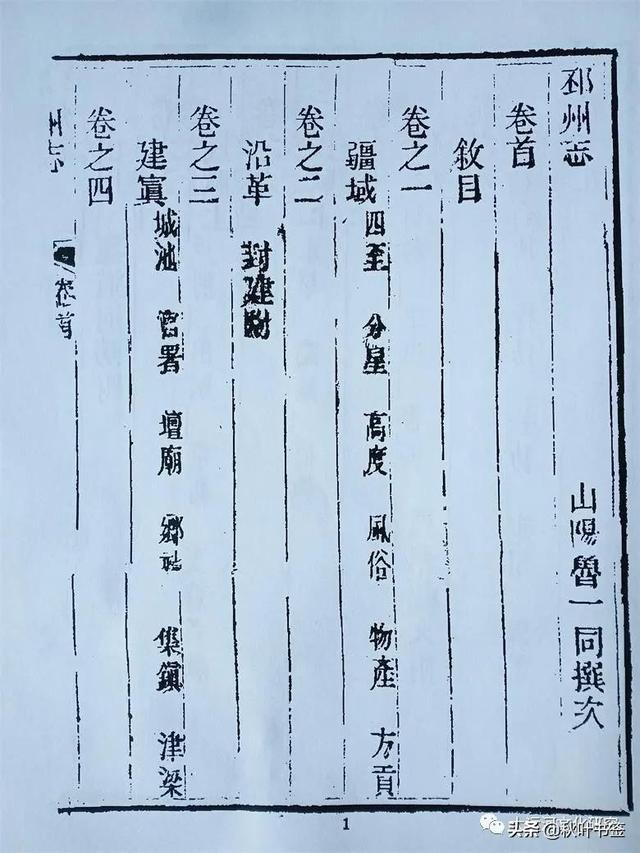 邳州志
山陽魯一同撰次
卷首
敘目
卷之一
疆域 四至 分星 高度 風俗 物產 方貢
卷之二
沿革 封建附
卷之三
建寘 城池 官署 壇廟 鄉社 集鎮 津梁
卷之四
州志
卷首
1
头条@秋叶书签